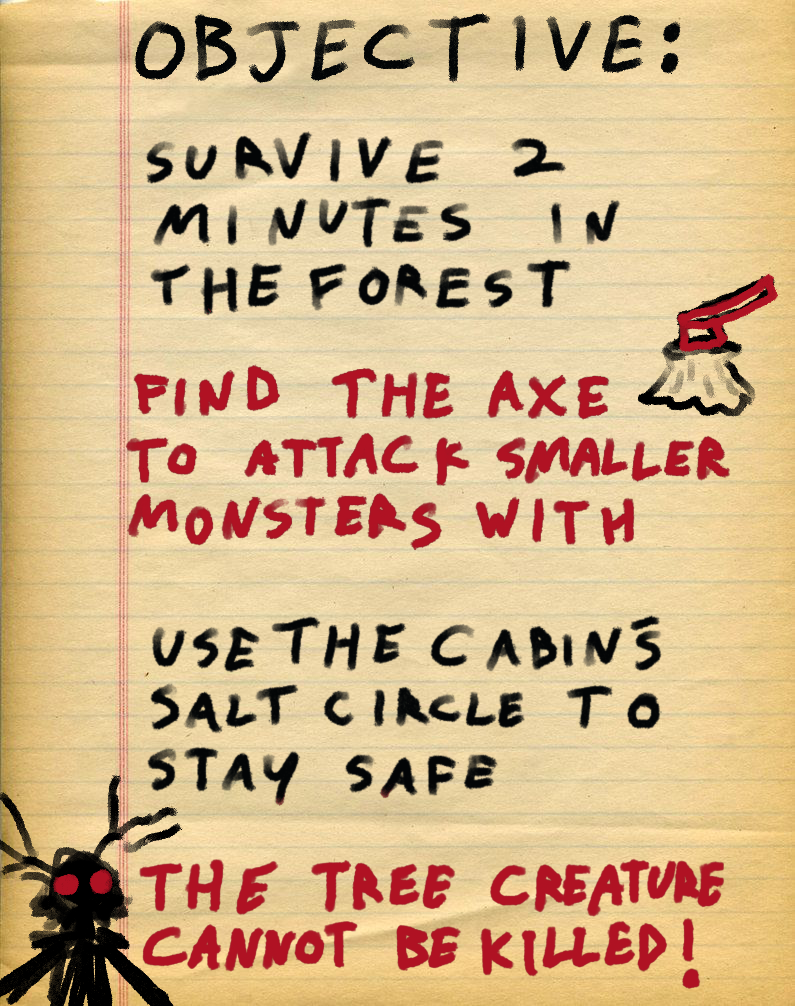 OBJECTIVE:
SURVIVE 2
MINUTES IN
THE FOREST
FIND THE AXE
TO ATTACK SMALLER
MONSTERS WITH
USE THE CABIN'S
SALT CIRCLE TO
STAY SAFE
THE TREE CREATURE
CANNOT BE KILLED!